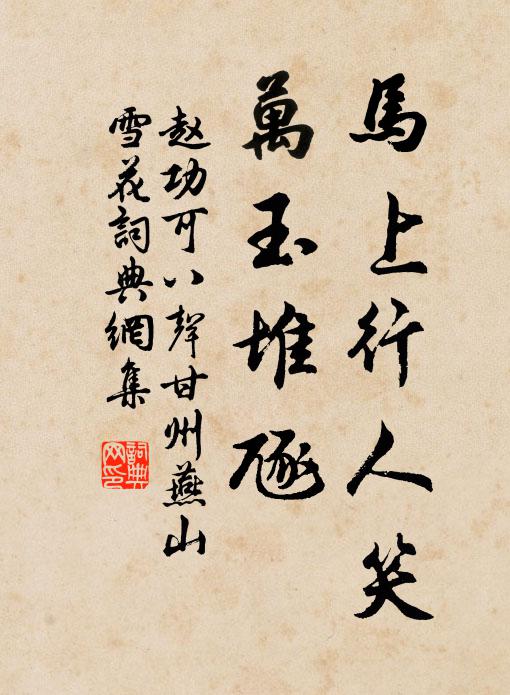 馬上行人笑
萬玉堆豗
赵功可八聲甘州燕山
雪花詞典網集
詞典
网印